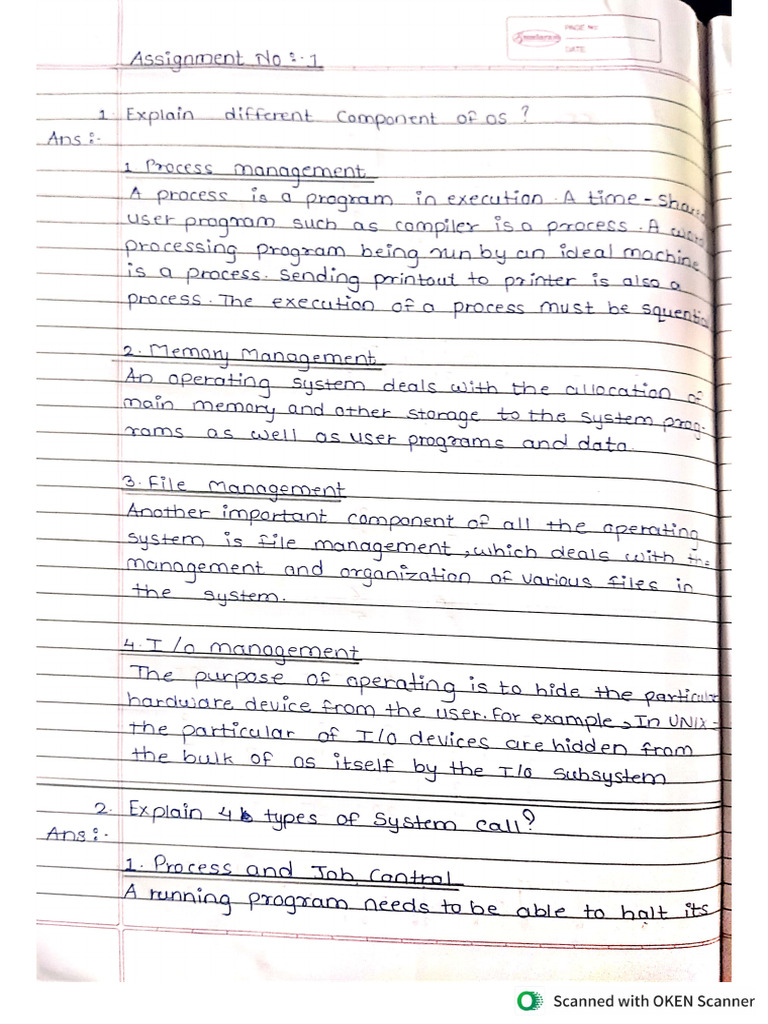 PAGE No.
DATE
Assignment No :- 1
1. Explain different Component of OS ?
Ans :-
1 Process management
A process is a program in execution. A time - shared
user program such as compiler is a process. A word
processing program being run by an ideal machine
is a process. Sending printout to printer is also a
process. The execution of a process must be squential
2. Memory Management
An operating system deals with the allocation of
main memory and other storage to the system prog-
rams as well as user programs and data.
3. File management
Another important component of all the operating
system is file management, which deals with the
management and organization of various files in
the system.
4. I/O management
The purpose of operating is to hide the particular
hardware device from the user. For example, In UNIX -
the particular of I/O devices are hidden from
the bulk of os itself by the I/O subsystem
2. Explain 4 types of System call?
Ans :-
1. Process and Job Control
A running program needs to be able to halt its
Scanned with OKEN Scanner